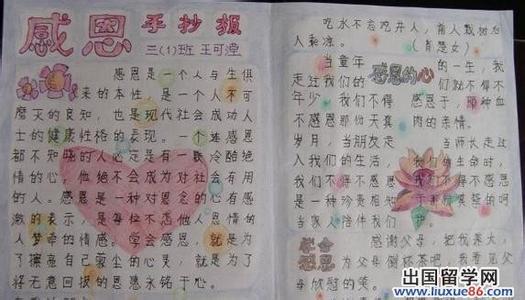 感恩 手抄报
三(1)班 王可滢
感恩是一个人与生俱
来的本性,是一个人不可
磨灭的良知,也是现代社会成功人
士的健康性格的表现。一个连感恩
都不知晓的人必定是有一颗冷酷绝
情的心,他绝不会成为对社会有用
的人。感恩是一种对恩惠心存感
激的表示,是每位不忘他人恩情的
人萦绕的情感。学会感恩,就是为
了擦亮自己蒙尘的心灵,就是为了
将无意回报的恩惠永铭于心。
吃水不忘挖井人,前人栽树后
人乘凉。
当童年 感恩的心 的一生,我
走过我们的 们就不得不
年少,我们不得 感恩于,那种血
不感恩那份天真 肉的亲情。
岁月,当朋友走 当师长走过
入我们的生活, 我们的生命时,
我们不得不感恩 我们不得不感恩
是一种珍贵相知
学会 感恩 感谢父母,把我养大,
为父母倒杯茶吧,我愿意看
父母欣慰的笑。
出国留学网
www.liuxue86.com